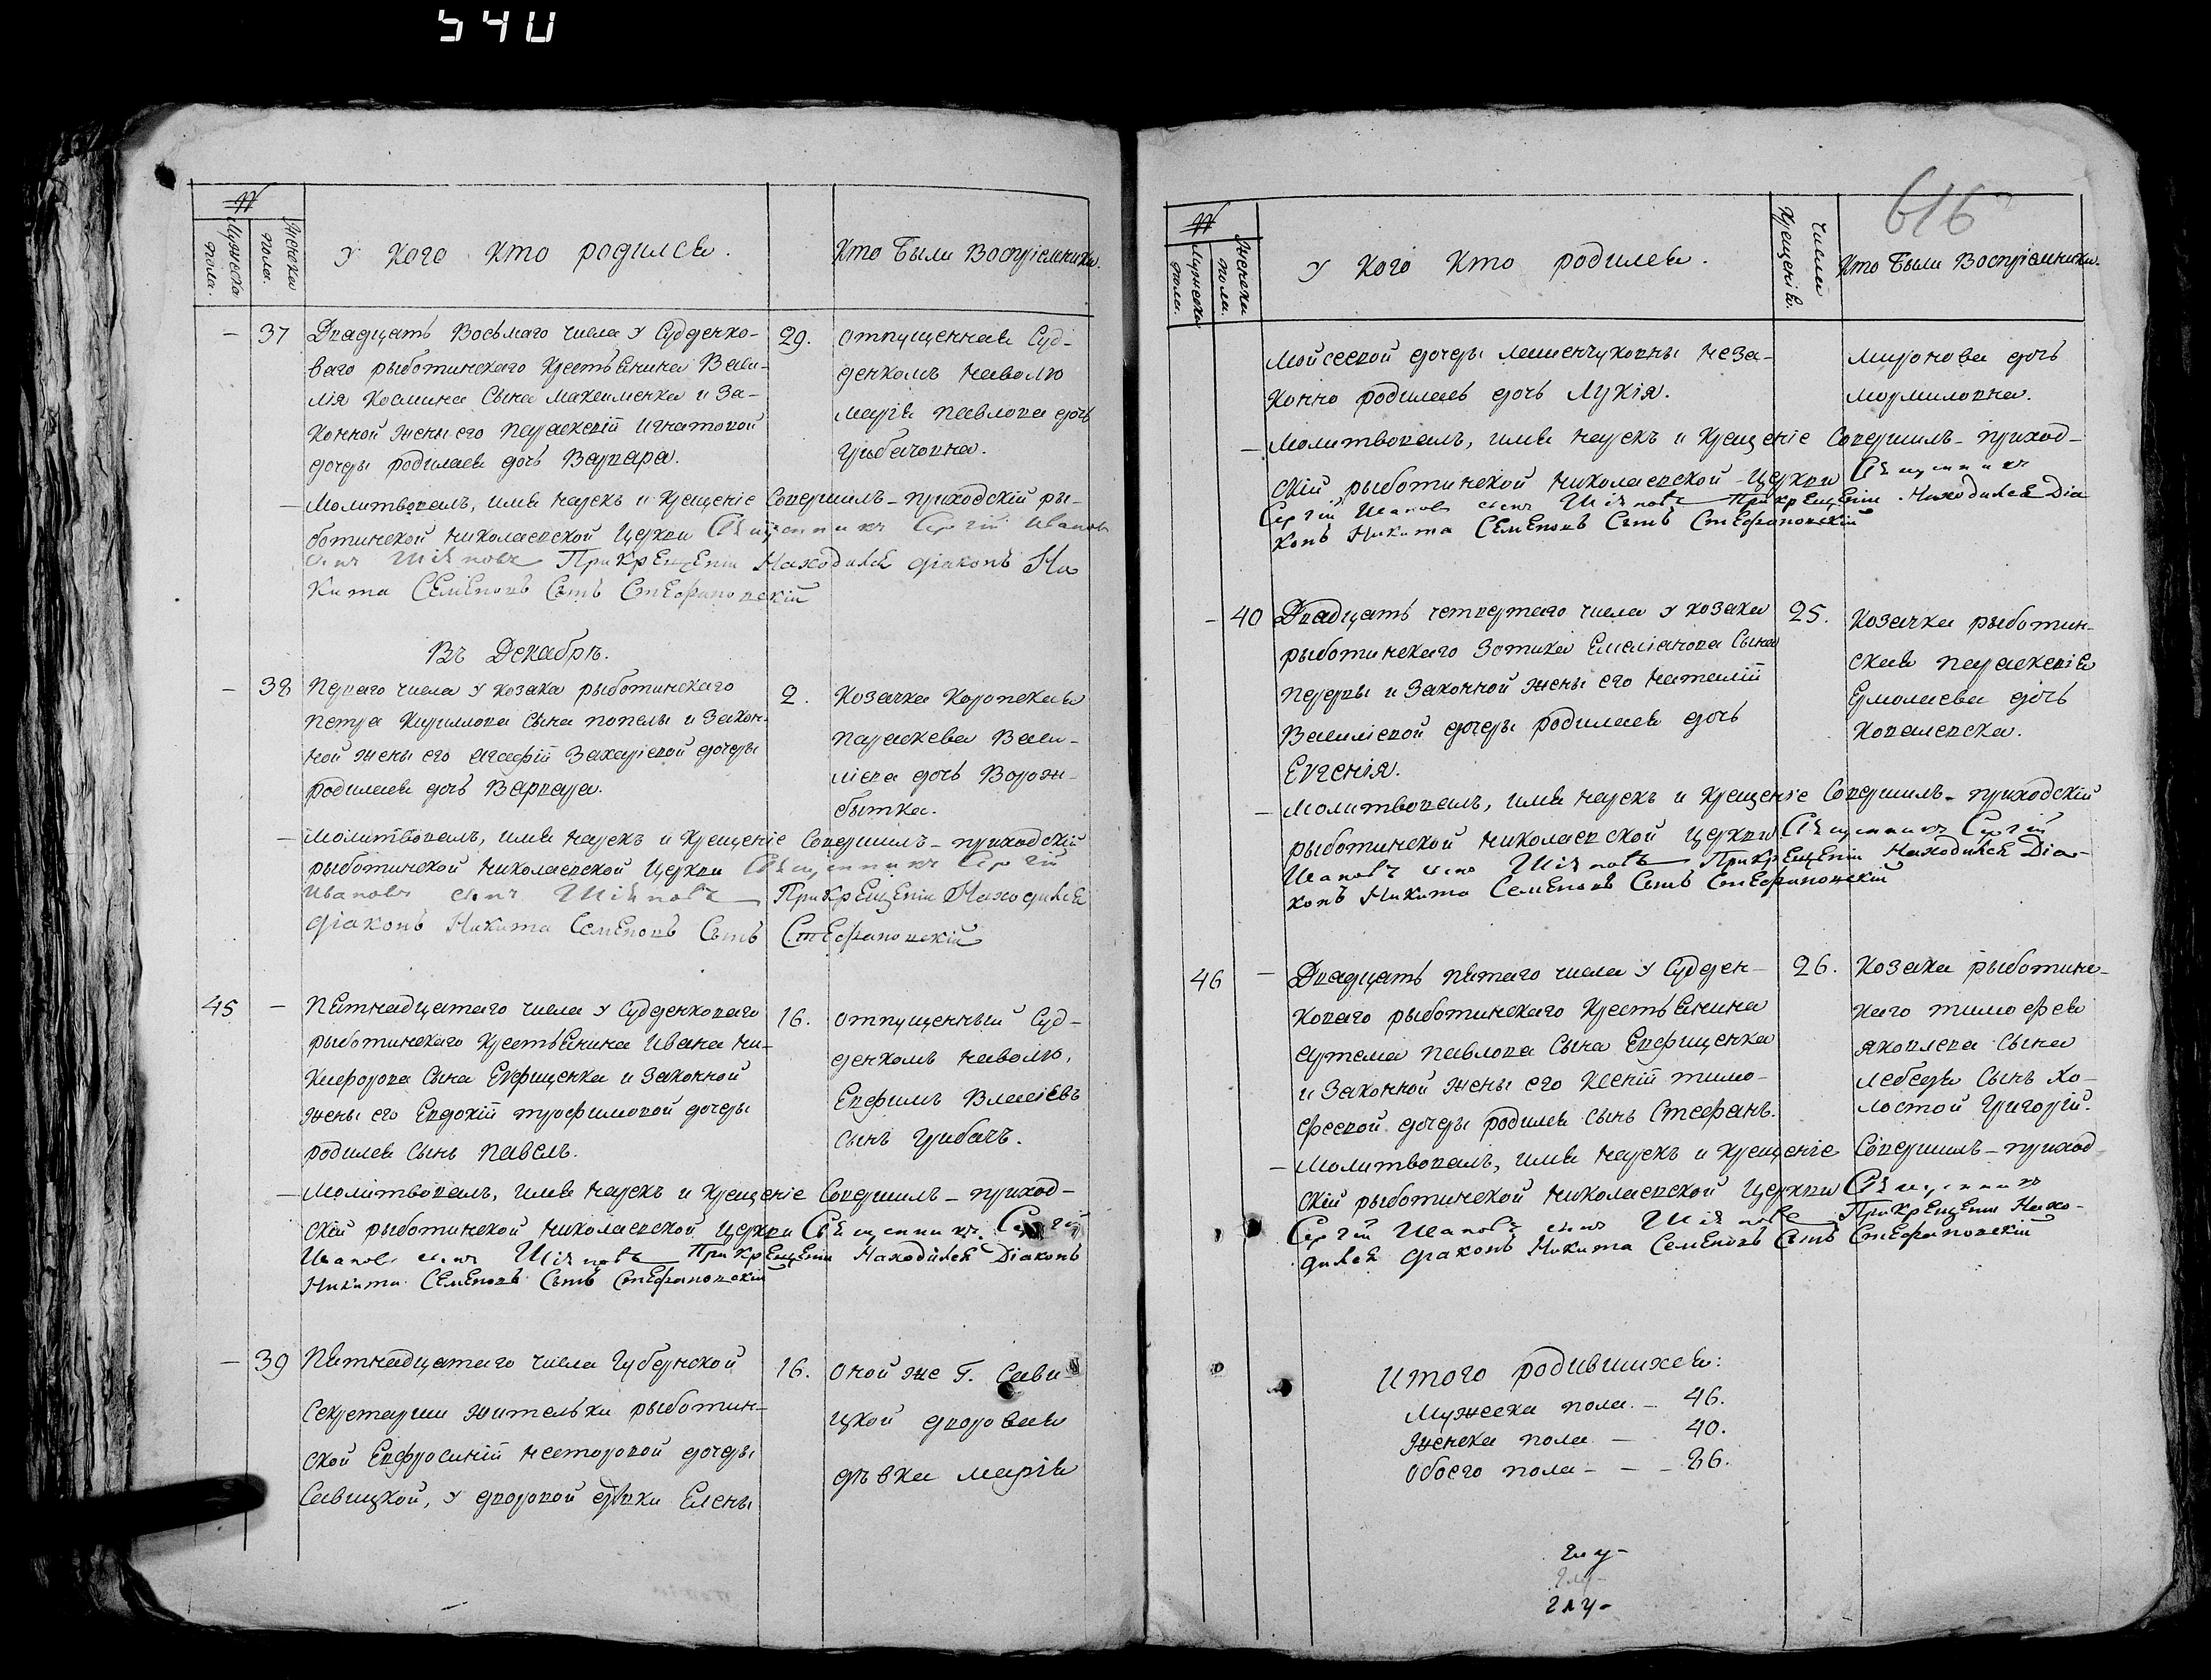 540
№
Мужеска пола.
Женска пола.
У кого кто родился.
Кто были Воспріемники.
— 37
Двадцать Восьмаго числа у Судденко-
ваго рыботинскаго крестьянина Васи-
лія Космина сына Максименка и за-
конной жены его Параскевій Игнатовой
дочеры родилася дочь Варвара.
29.
Отпущенная Суд-
денкомъ наволю
Марія Павлова дочь
Грибачовна.
— Молитвовалъ, имя нарекъ и крещеніе совершилъ — приходскій ры-
ботинской Николаевской Церкви Священникъ Сергій Ивановъ
сынъ При крещеніи находился діаконъ Ни
кита Семеновъ Сынъ Стефановскій
Въ Декабрѣ.
— 38
Перваго числа у козака рыботинскаго
Петра Кириллова сына Попелы и закон-
ной жены его Агафій Захаріевой дочеры
родилася дочь Варвара.
2.
Козачка Коропская
Параскева Васи-
ліева дочьВорож-
бытка.
— Молитвовалъ, имя нарекъ и крещеніе совершилъ — приходскій
рыботинской Николаевской Церкви Священникъ Сергій
Ивановъ сынъ При крещеніи находился
діаконъ Никита Семеновъ Сынъ Стефановскій
45 —
Пятнадцатаго числа у Судденковаго
рыботинскаго крестьянина Ивана Ни-
кифорова сына Евфищенка и законной
жены его Евдокій Трофимовой дочеры
родился сынъ Павелъ.
16.
Отпущенный Суд-
денкомъ наволю,
Евфимъ Власіевъ
сынъ Грибачъ.
— Молитвовалъ, имя нарекъ и крещеніе совершилъ — приход-
скій рыботинской Николаевской Церкви Священникъ Сергій
Ивановъ сынъ При крещеніи находился Діаконъ
Никита Семеновъ Сынъ Стефановскій
— 39
Пятнадцатаго числа Губернской
Секретарши жительки рыботин-
ской Евфросиній Несторовой дочеры
Савицкой, у дворовой дѣвки Елены
16.
Оной же Г. Сави-
цкой дворовая
дѣвка Марія
616
№
Мужеска пола.
Женска пола.
У кого кто родился.
Числа крещенія.
Кто были Воспріемники.
Мойсеевой дочеры Лашенчуковны неза-
конно родилась дочь Лукія.
Миронова дочь
Мормиловна.
— Молитвовалъ, имя нарекъ и крещеніе совершилъ — приход-
скій рыботинской Николаевской Церкви Священникъ
Сергій Ивановъ сынъ При крещеніи находился Діа
конъ Никита Семеновъ Сынъ Стефановскій
— 40
Двадцать четвертаго числа у козака
рыботинскаго Зотика Емеліанова сына
Переры и законной жены его Наталій
Василіевой дочеры родилася дочь
Евгенія.
25.
Козачка рыботин-
ская Параскевія
Ермолаева дочь
Ковалевска.
— Молитвовалъ, имя нарекъ и крещеніе совершилъ — приходскій
рыботинской Николаевской Церкви Священникъ Сергій
Ивановъ сынъ При крещеніи находился Діа-
конъ Никита Семеновъ Сынъ Стефановскій
46 —
Двадцать пятаго числа у Судден-
коваго рыботинскаго крестьянина
Артема Павлова сына Евфищенка
и законной жены его Ксеній Тимо-
феевой дочеры родился сынъ Стефанъ.
26.
Козака рыботинс-
каго Тимофея
Яковлева сына
Лебедя сынъ хо-
лостой Григорій.
— Молитвовалъ, имя нарекъ и крещеніе совершилъ — приход
скій рыботинской Николаевской Церкви Священникъ
Сергій Ивановъ сынъ При крещеніи нахо-
дился діаконъ Никита Семеновъ Сынъ Стефановскій
Итого родившихся:
Мужеска пола — 46.
Женска пола — 40.
Обоего пола — — 86.